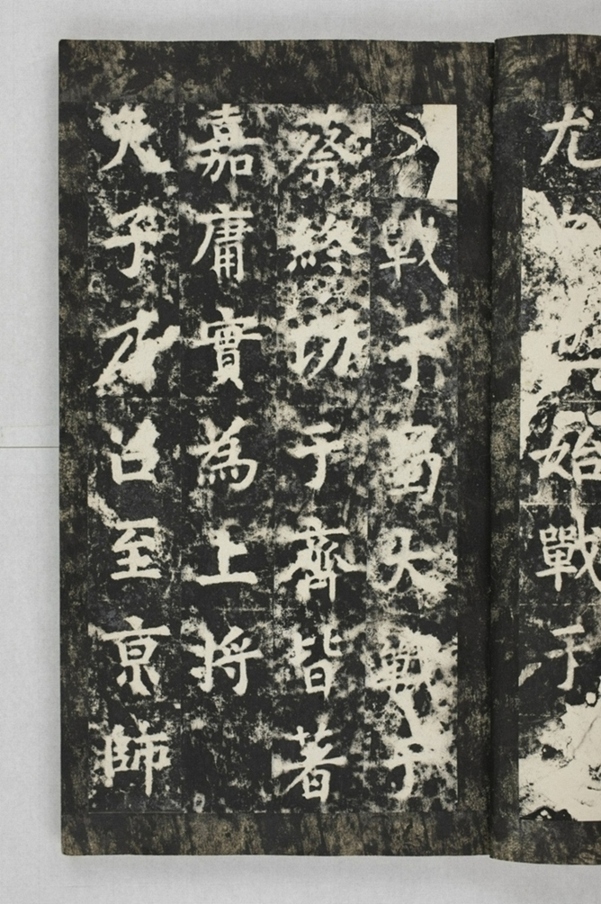 尤始戰于
戰于蜀大戰于
蔡終功于齊皆著
嘉庸實為上將
天子承召至京師